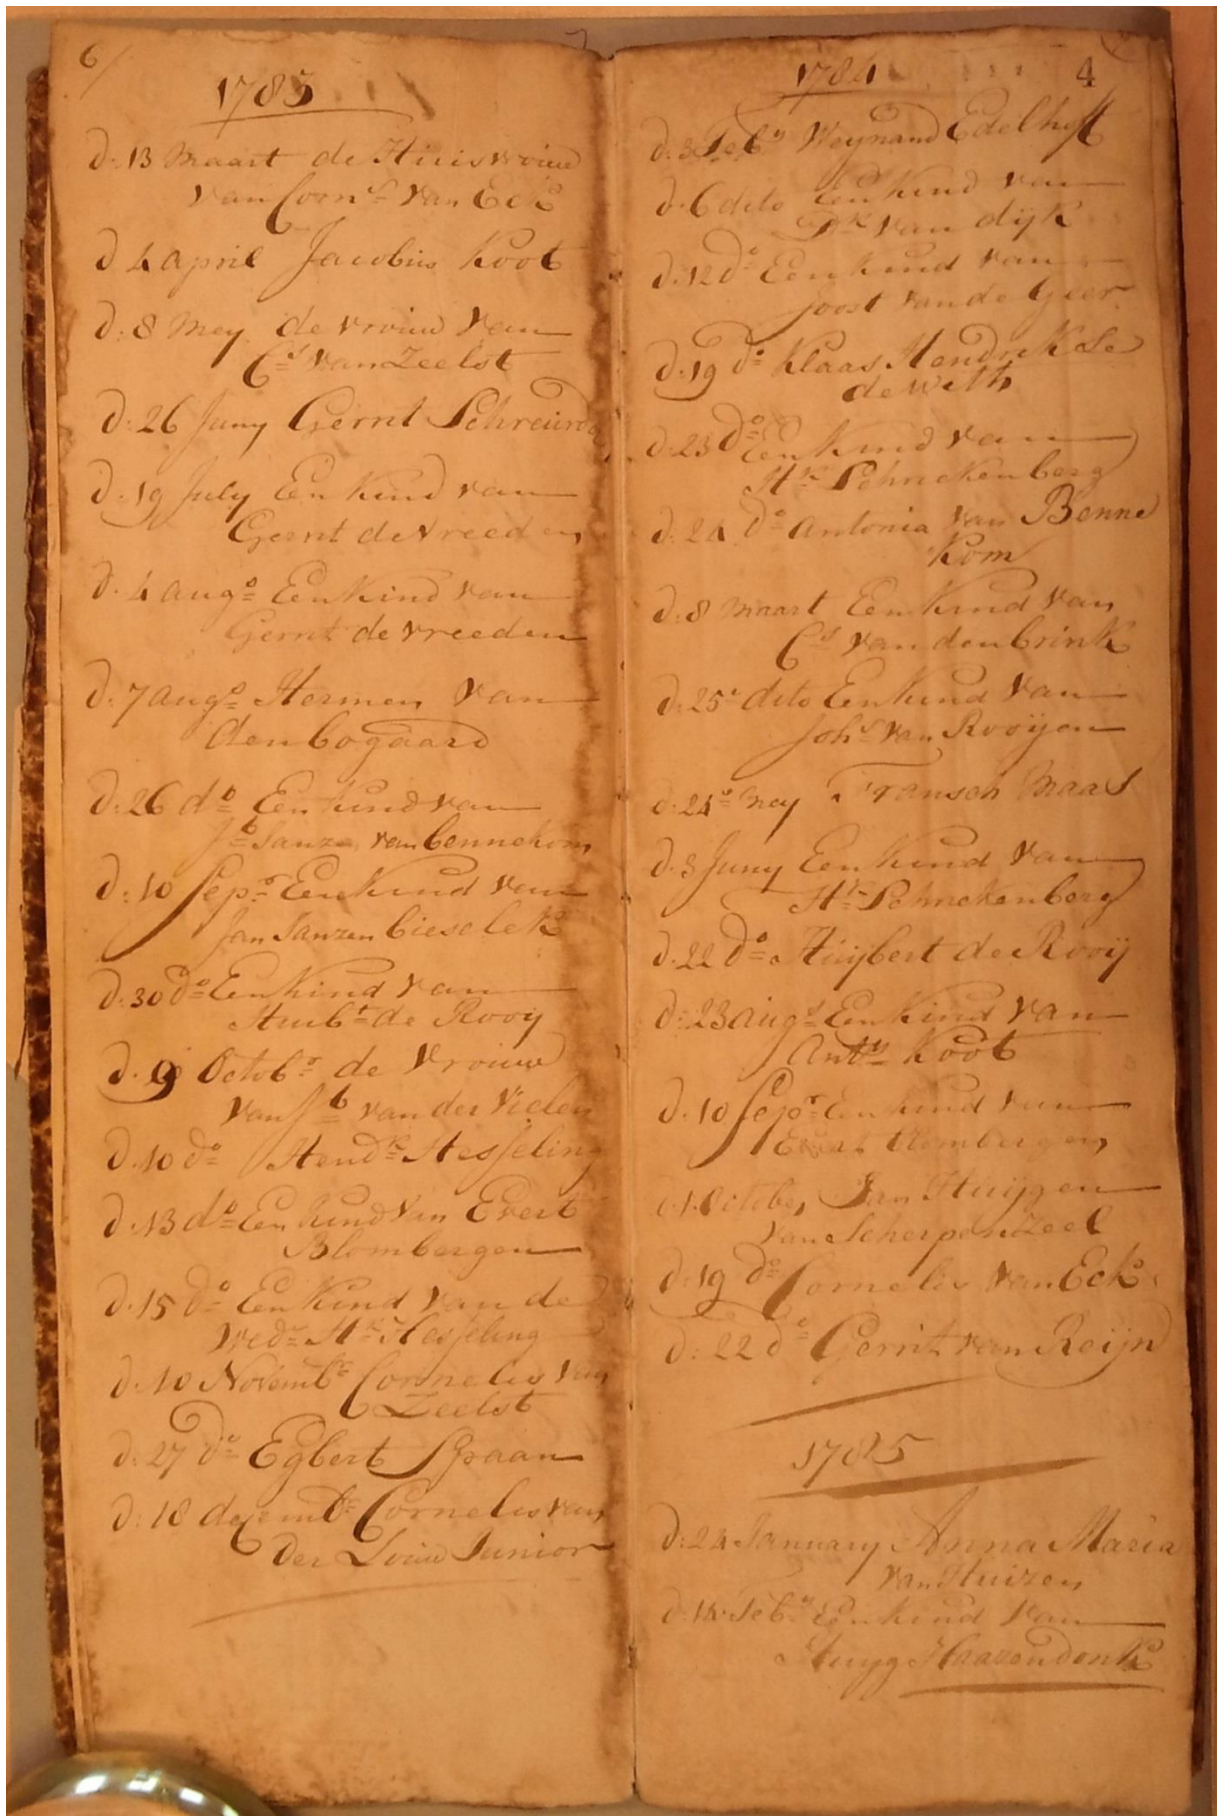 6/
1783
d: 13 Maart de Huisvrouw
van Corn.s van Eck
d 4 april Jacobus Koot
d: 8 Mey de vrouw van
C.s van Zeelst
d: 26 Juny Gerrit Schreuder
d: 19 July Een Kind van
Gerrit de Vreeden
d: 4 aug.o Een Kind van
Gerrit de vreeden
d: 7 aug.o Hermen van
den bogaard
d: 26 d.o Een kind van
J.b Janze van bennekom
d: 10 Sep.r Een Kind van
Jan Janzen Cieselek
d: 30 d.o Een kind van
Huib.t de Rooy
d. 9 Octob.r de Vrouw
van J.b van der Vielen
d. 10 d.o Hend.k Hesseling
d. 13 d.o Een kind van Evert
Blombergen
d. 15 d.o Een Kind van de
wed.e H.k Hesseling
d. 10 Novemb.r Cornelis van
Zeelst
d: 27 d.o Egbert Spaan
d: 18 decemb.r Cornelis van
der Louw Junior
1784
4
d. 3 Feb.y Weynand Edelhoft
d. 6 dito Een Kind van
D.k van dijk
d: 12 d.o Een kind van
Joost van de Geer
d: 19 d.o Klaas Hendrekse
de With
d: 23 d.o Een kind van
H.k Schreckenberg
d: 24 d.o Antonia van Benne
Kom
d: 8 Maart Een Kind van
C.s van den brink
d: 25 dito Een Kind van
Joh.s van Rooijen
d: 24 Mey Fransch Maas
d. 3 Juny Een kind van
H.k Schrekenberg
d. 22 d.o Huijbert de Rooij
d: 23 aug.s Een Kind van
Ant.y Koot
d. 10 Sep.r Een kind van
Evert Blombergen
d. 1. October Jan Huijgen
van Scherpenzeel
d: 19 d.o Cornelis van Eck
d: 22 d.o Gerrit van Reijn
1785
d: 24 January Anna Maria
van Huizen
d. 14 Feb.y Een kind van
Huyg Haavendonk